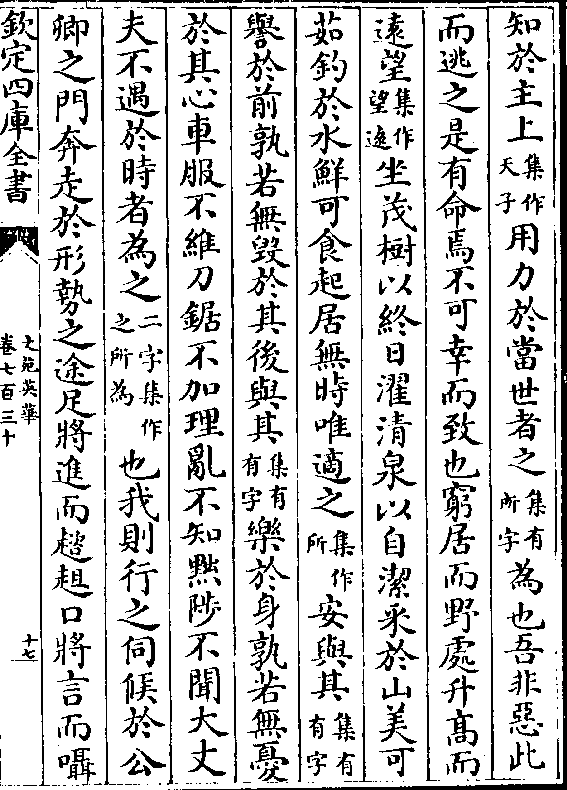 知於主上集作天子用力於當世者之集有所字為也吾非惡此
而逃之是有命焉不可幸而致也窮居而野處升髙而
逺望集作望逺坐茂樹以終日濯清泉以自潔采於山美可
茹釣於水鮮可食起居無時唯適之集作所安與其集有有字
譽於前孰若無毀於其後與其集有有字樂於身孰若無憂
於其心車服不維刀鋸不加理亂不知黜陟不聞大丈
夫不遇於時者為之二字集作之所為也我則行之伺候於公
卿之門奔走於形勢之途足將進而趑趄口將言而囁
欽定四庫全書
文苑英華
卷七百三十
十七